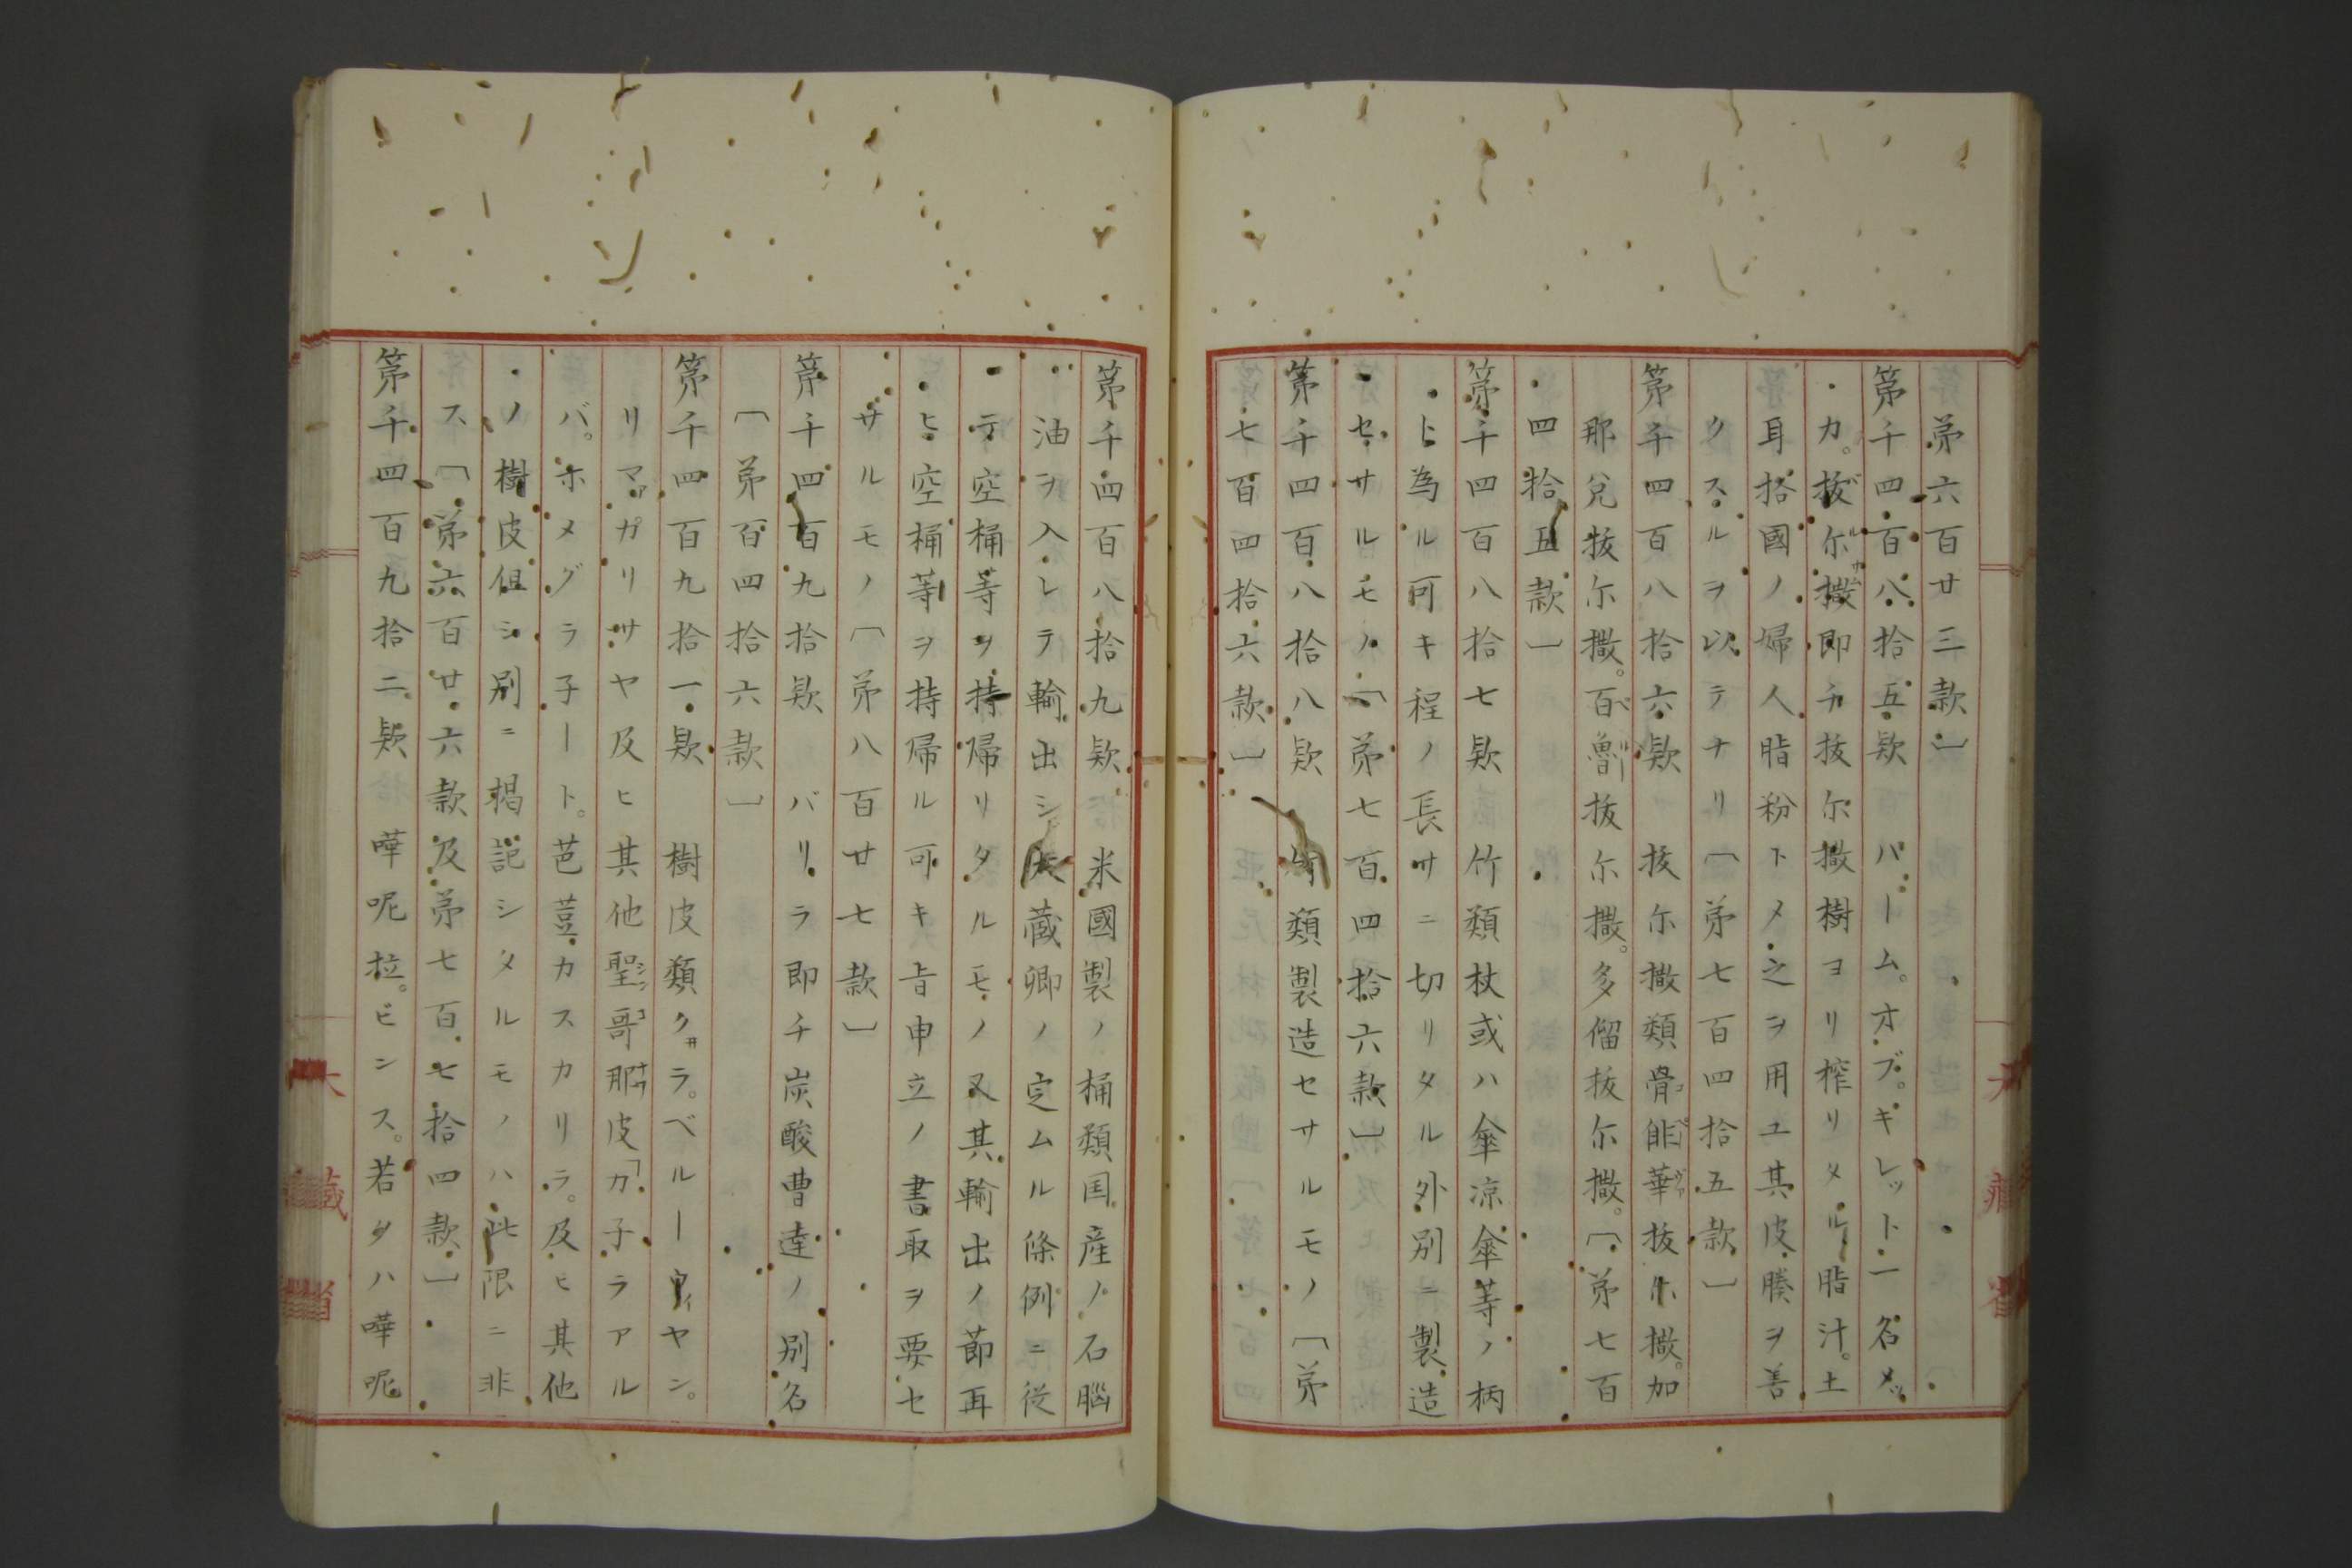 第六百廿三款〕
第千四百八拾五款　バーム。オブ。キレット一名メッ
カ。抜尓撒即チ抜尓撒樹ヨリ榨リタル脂汁。土
耳其國ノ婦人脂粉トメ之ヲ用ユ其皮膚ヲ善
クスルヲ以テナリ〔第七百四拾五款〕
第千四百八拾六款　抜尓撒類骨華抜尓撒。加
那兌抜尓撒。百魯抜尓撒。多僂抜尓撒。〔第七百
四拾五款〕
第千四百八拾七款　竹類杖或ハ傘凉傘等ノ柄
ト為ル可キ程ノ長サニ切リタル外別ニ製造
セサルモノ〔第七百四拾六款〕
第千四百八拾八款　竹類製造セサルモノ〔第
七百四拾六款〕
第千四百八拾九款　米國製ノ桶類国産ノ石腦
油ヲ入レテ輸出シ大蔵卿ノ定ムル條例ニ従
テ空桶等ヲ持帰リタルモノ又其輸出ノ節再
ヒ空桶等ヲ持帰ル可キ旨申立ノ書取ヲ要セ
サルモノ〔第八百廿七款〕
第千四百九拾款　バリラ即チ炭酸曹達ノ別名
〔第百四拾六款〕
第千四百九拾一款　樹皮類クヰラ。ベルーウィヤン。
リマァガリサヤ及ヒ其他聖哥那皮「カ子ラアル
バ。ホメグラ子ート。芭荳カスカリラ。及ヒ其他
ノ樹皮但シ別ニ揭記シタルモノハ此限ニ非
ス〔第六百廿六款及第七百七拾四款〕
第千四百九拾二款　嘩呢拉。ビンス。若タハ嘩呢
大蔵省
大藏省